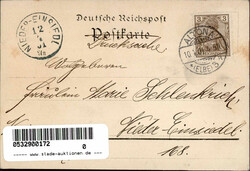 Deutsche Reichspost
Postkarte
Drucksache
NIEDER-EINSIEDEL
12
4
01
ALTONA
(ELBE)
3
Wohlgeboren
Fräulein Marie Schlenkrich
Nieder Einsiedel
0532900172
0
www.klade-auktionen.de